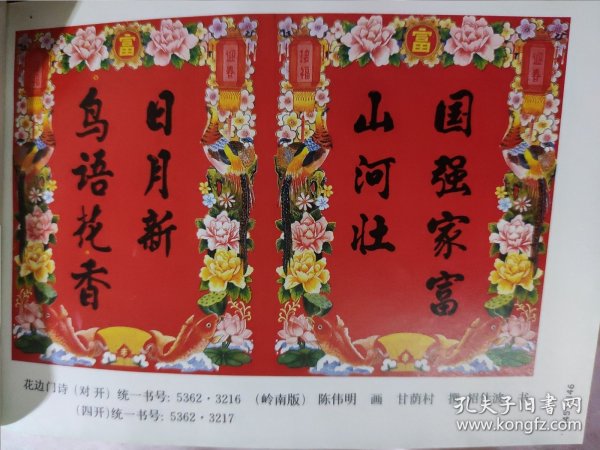 国强家富
山河壮
日月新
鸟语花香
富
富
迎春
接福
迎春
花边门诗(对开)统一书号:5362·3216 (岭南版) 陈伟明 画 甘荫村
(四开)统一书号:5362·3217
孔夫子旧书网
www.kongfz.com